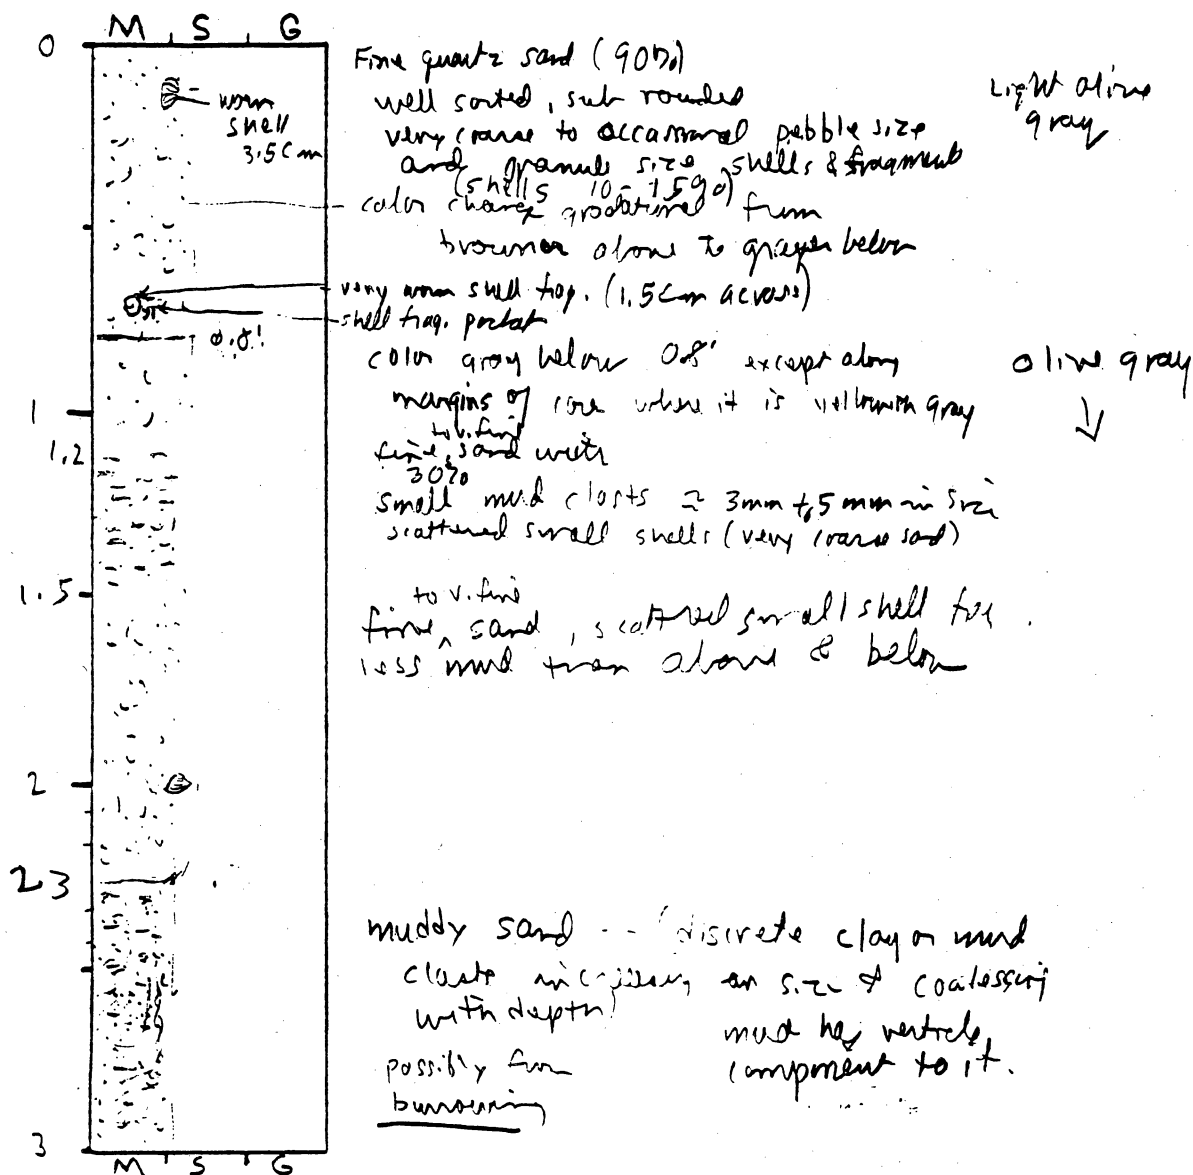 M S G
0
Fine quartz sand (90%)
well sorted, sub rounded
Light olive
gray
worn
shell
3.5cm
very coarse to occasional pebble size
and granule size shells & fragment
(shells 10-15%)
color change gradational from
browner above to grayer below
very worn shell frag. (1.5cm across)
shell frag. pocket
0.8'
color gray below 0.8' except along
margins of core where it is yellowish gray
olive gray
1
1.2
to v. fine
fine, sand with
30%
small mud clasts ≈ 3mm to 5mm in size
scattered small shells (very coarse sand)
1.5
to v. fine
fine ^ sand, scattered small shell
less mud than above & below
2
2.3
muddy sand -- (discrete clay or mud
clasts increasing in size & coalescing
with depth)
mud has verticle
component to it.
possibly from
burrowing
3
M S G